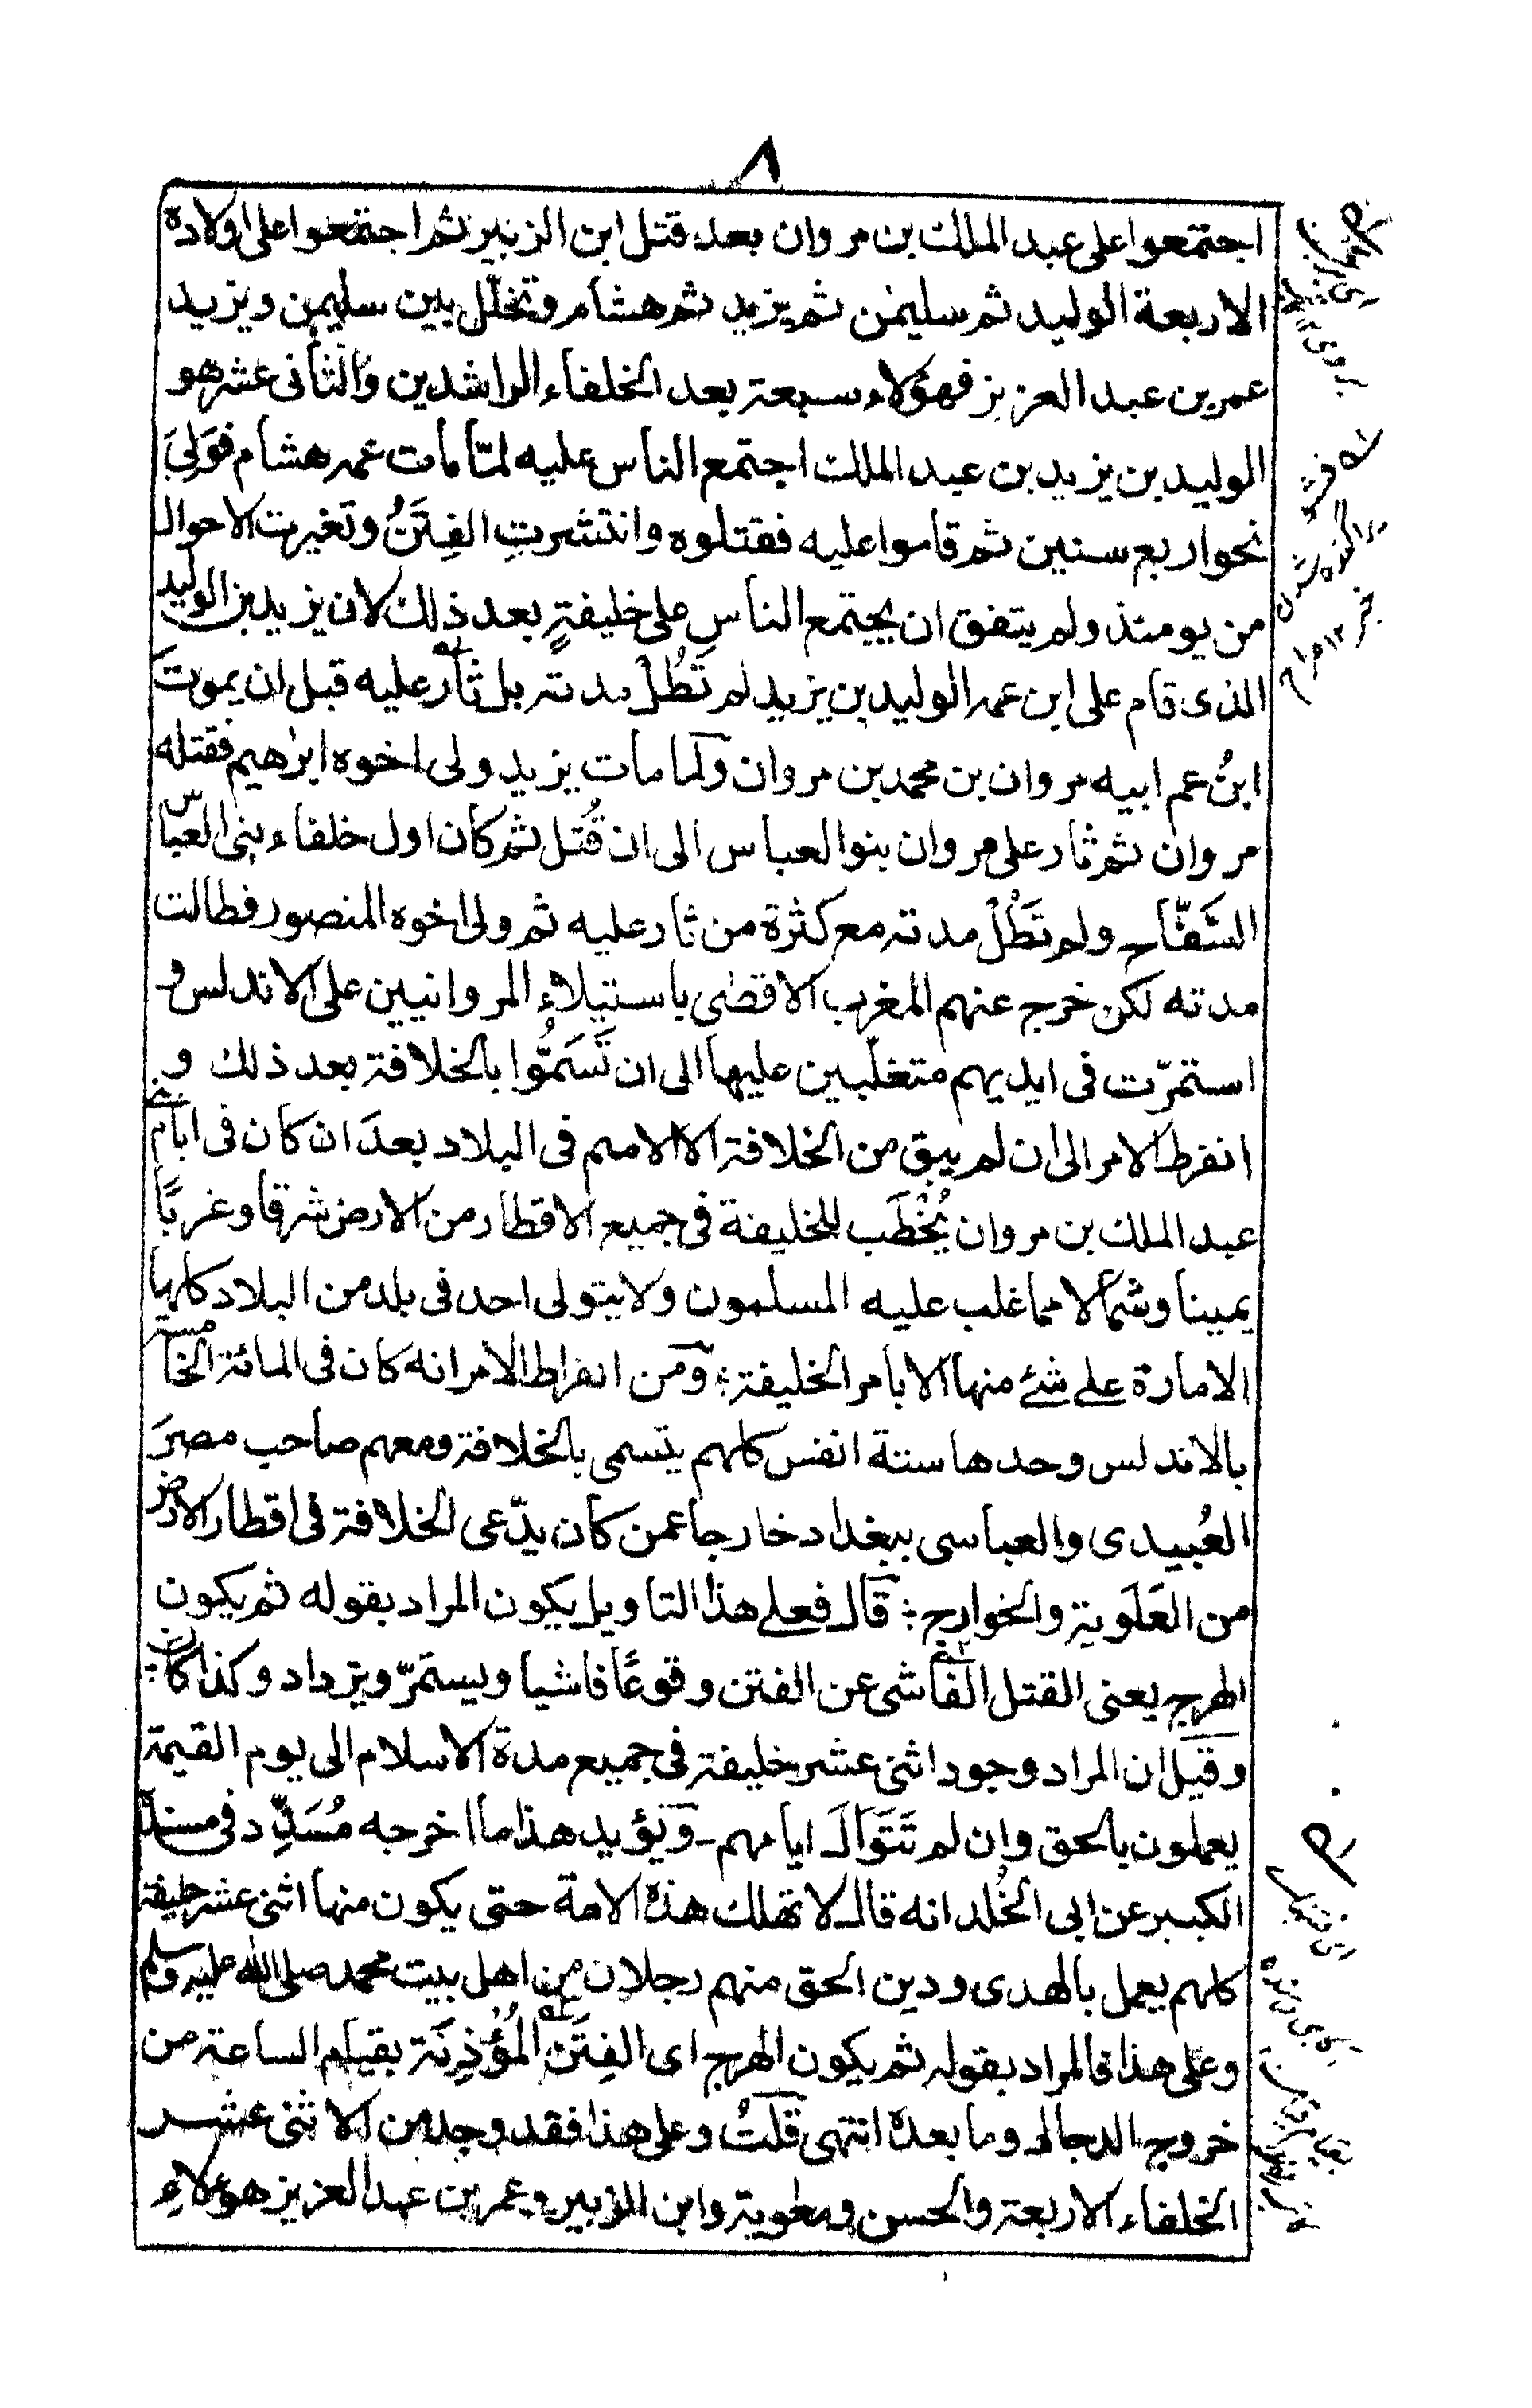 ٨
اجتمعوا على عبد الملك بن مروان بعد قتل ابن الزبير ثم اجتمعوا على اولاده
الاربعة الوليد ثم سليمٰن ثم يزيد ثم هشام وتخلّل بين سليمٰن ويزيد
عمر بن عبد العزيز فهؤلاء سبعة بعد الخلفاء الراشدين والثانى عشر هو
الوليد بن يزيد بن عبد الملك اجتمع الناس عليه لمّا مات عمه هشام فوَلِيَ
نحو اربع سنين ثم قاموا عليه فقتلوه وانتشرتِ الفِتَنُ وتغيرت الاحوال
من يومئذ ولم يتفق ان يجتمع الناس على خليفةٍ بعد ذلك لان يزيد بن الوليد
الذى قام على ابن عمه الوليد بن يزيد لم تَطُلْ مدته بل ثار عليه قبل ان يموتَ
ابنُ عم ابيه مروان بن محمد بن مروان ولما مات يزيد ولى اخوه ابرٰهيم فقتله
مروان ثم ثار على مروان بنو العباس الى ان قُتل ثم كان اول خلفاء بنى العباس
السَّفّاح ولم تَطُلْ مدته مع كثرة من ثار عليه ثم ولى اخوه المنصور فطالت
مدته لكن خرج عنهم المغرب الاقصٰى باستيلاء المروانيين على الاندلس و
استمرّت فى ايديهم متغلّبين عليها الى ان تَسَمُّوا بالخلافة بعد ذلك و
انفرط الامر الى ان لم يبق من الخلافة الا الاسم فى البلاد بعدَ ان كان فى ايام
عبد الملك بن مروان يُخْطَب للخليفة فى جميع الاقطار من الارض شرقا وغربًا
يمينا وشمالا مما غلب عليه المسلمون ولا يتولى احد فى بلد من البلاد كلها
الامارة على شئ منها الا بامر الخليفة؛ ومن انفراط الامر انه كان فى المائة الخامسة
بالاندلس وحدها ستة انفس كلهم يتسمى بالخلافة ومعهم صاحب مصرَ
العُبيدى والعباسى ببغداد خارجا عمن كان يدّعى الخلافة فى اقطار الارض
من العَلَوية والخوارج؛ قال فعلى هذا التاويل يكون المراد بقوله ثم يكون
الهرج يعنى القتل الفاشى عن الفتن وقوعًا فاشيا ويستمرّ ويزداد وكذا كان؛
وقيل ان المراد وجود اثنى عشر خليفة فى جميع مدة الاسلام الى يوم القيمة
يعملون بالحق وان لم تَتَوَال ايامهم ـ ويؤيد هذا ما اخرجه مُسَدِّد فى مسنده
الكبير عن ابى الخُلد انه قال لا تهلك هذه الامة حتى يكون منها اثنى عشر خليفة
كلهم يعمل بالهدى ودين الحق منهم رجلان من اهل بيت محمد صلى الله عليه وسلم
وعلى هذا فالمراد بقوله ثم يكون الهرج اى الفِتَن المُؤْذِنَة بقيام الساعة من
خروج الدجال وما بعده انتهى قلتُ وعلى هذا فقد وجد من الاثنى عشر
الخلفاء الاربعة والحسن ومعٰوية وابن الزبير وعمر بن عبد العزيز هؤلاءِ